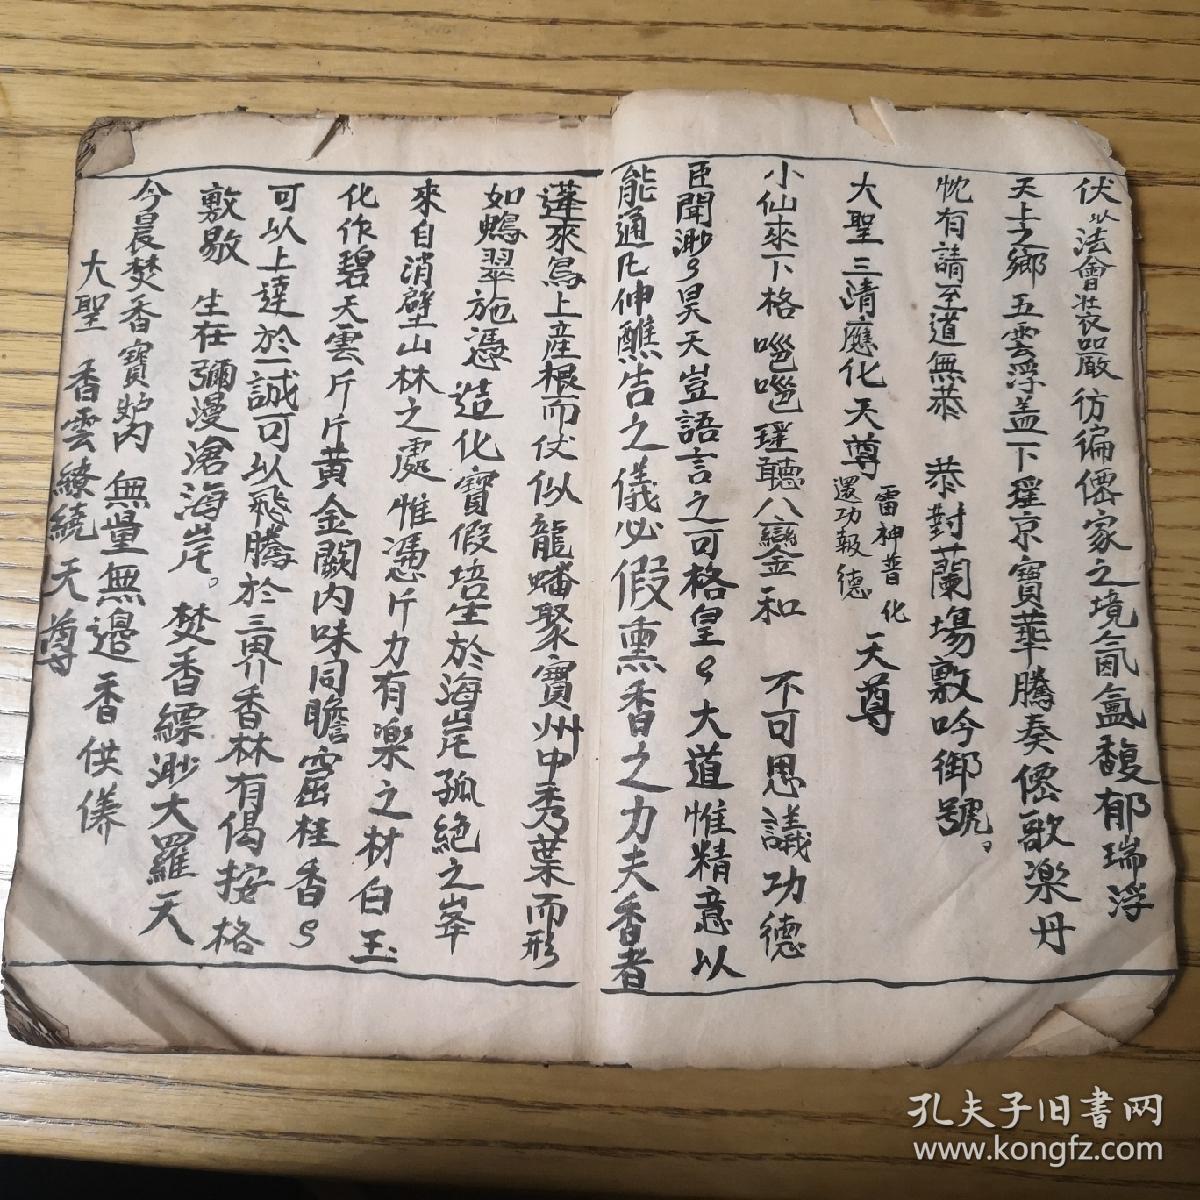 伏以法會裝嚴彷徧僊家之境氤氳馥郁瑞浮
天上之鄉五雲浮盖下瑤京寶華騰奏僊歌楽丹
忱有請至道無恭 恭對蘭場敷吟御號。
大聖三清應化天尊 雷神普化 還功報德 天尊
小仙來下格噬噬瑶聽八鑾和 不可思議功德
臣聞渺々昊天豈語言之可格皇々大道惟精意以
能通凡伸醮告之儀必假熏香之力夫香者
蓬來島上産根而仗似龍蟠聚寳州中秀葉而形
如鵶翠施憑造化寶假培生於海岸孤絕之峯
來自消壁山林之處惟憑斤力有楽之材白玉
化作碧天雲片片黄金闕内味同瞻窟桂香々
可以上達於一誠可以飛騰於三界香林有偈按格
敷敭 生在彌漫滄海岸。焚香縹渺大羅天
今晨焚香寶炉内 無量無邉香供养
大聖 香雲繚繞天尊
孔夫子旧书网
www.kongfz.com